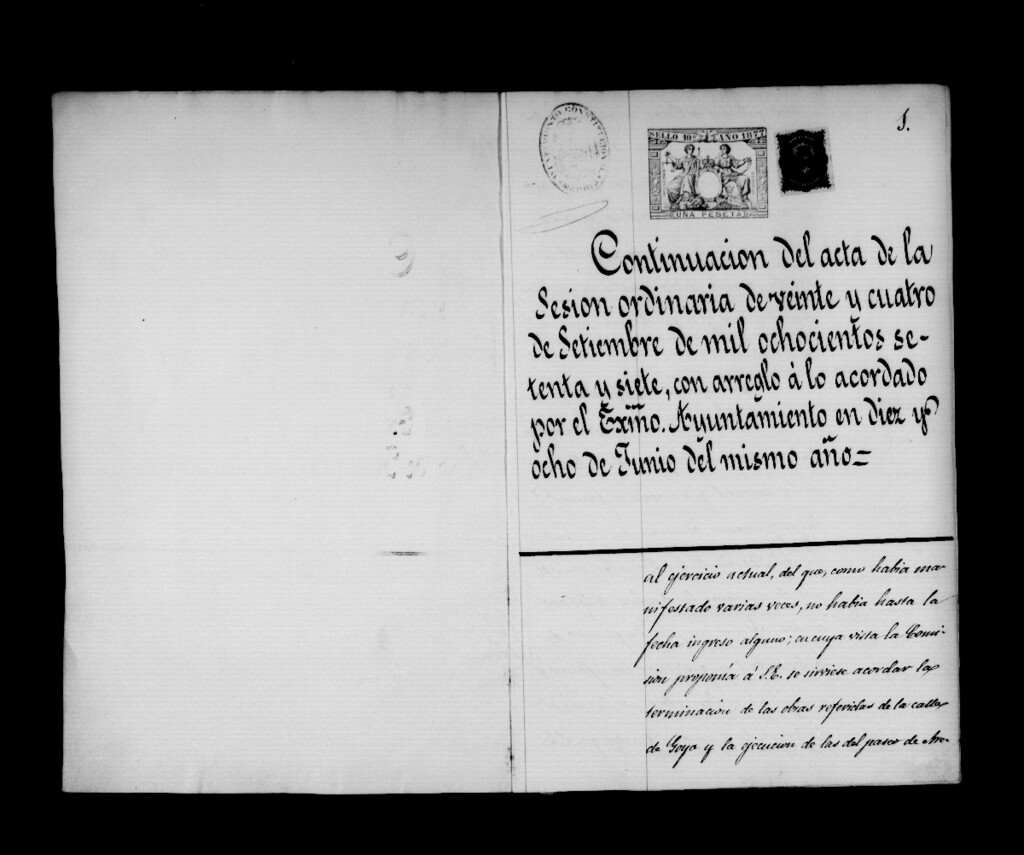 1.
AYUNTAMIENTO CONSTITUCION
SELLO 10º AÑO 1877
UNA PESETA
Continuacion del acta de la
Sesion ordinaria de veinte y cuatro
de Setiembre de mil ochocientos se-
tenta y siete, con arreglo á lo acordado
por el Exmo. Ayuntamiento en diez y
ocho de Junio del mismo año=
al ejercicio actual, del que, como habia ma-
nifestado varias veces, no habia hasta la
fecha ingreso alguno; en cuya vista la Comi-
sion proponía á S.E. se sirviese acordar la
terminacion de las obras referidas de la calle
de Goya y la ejecucion de las del paseo de Are-